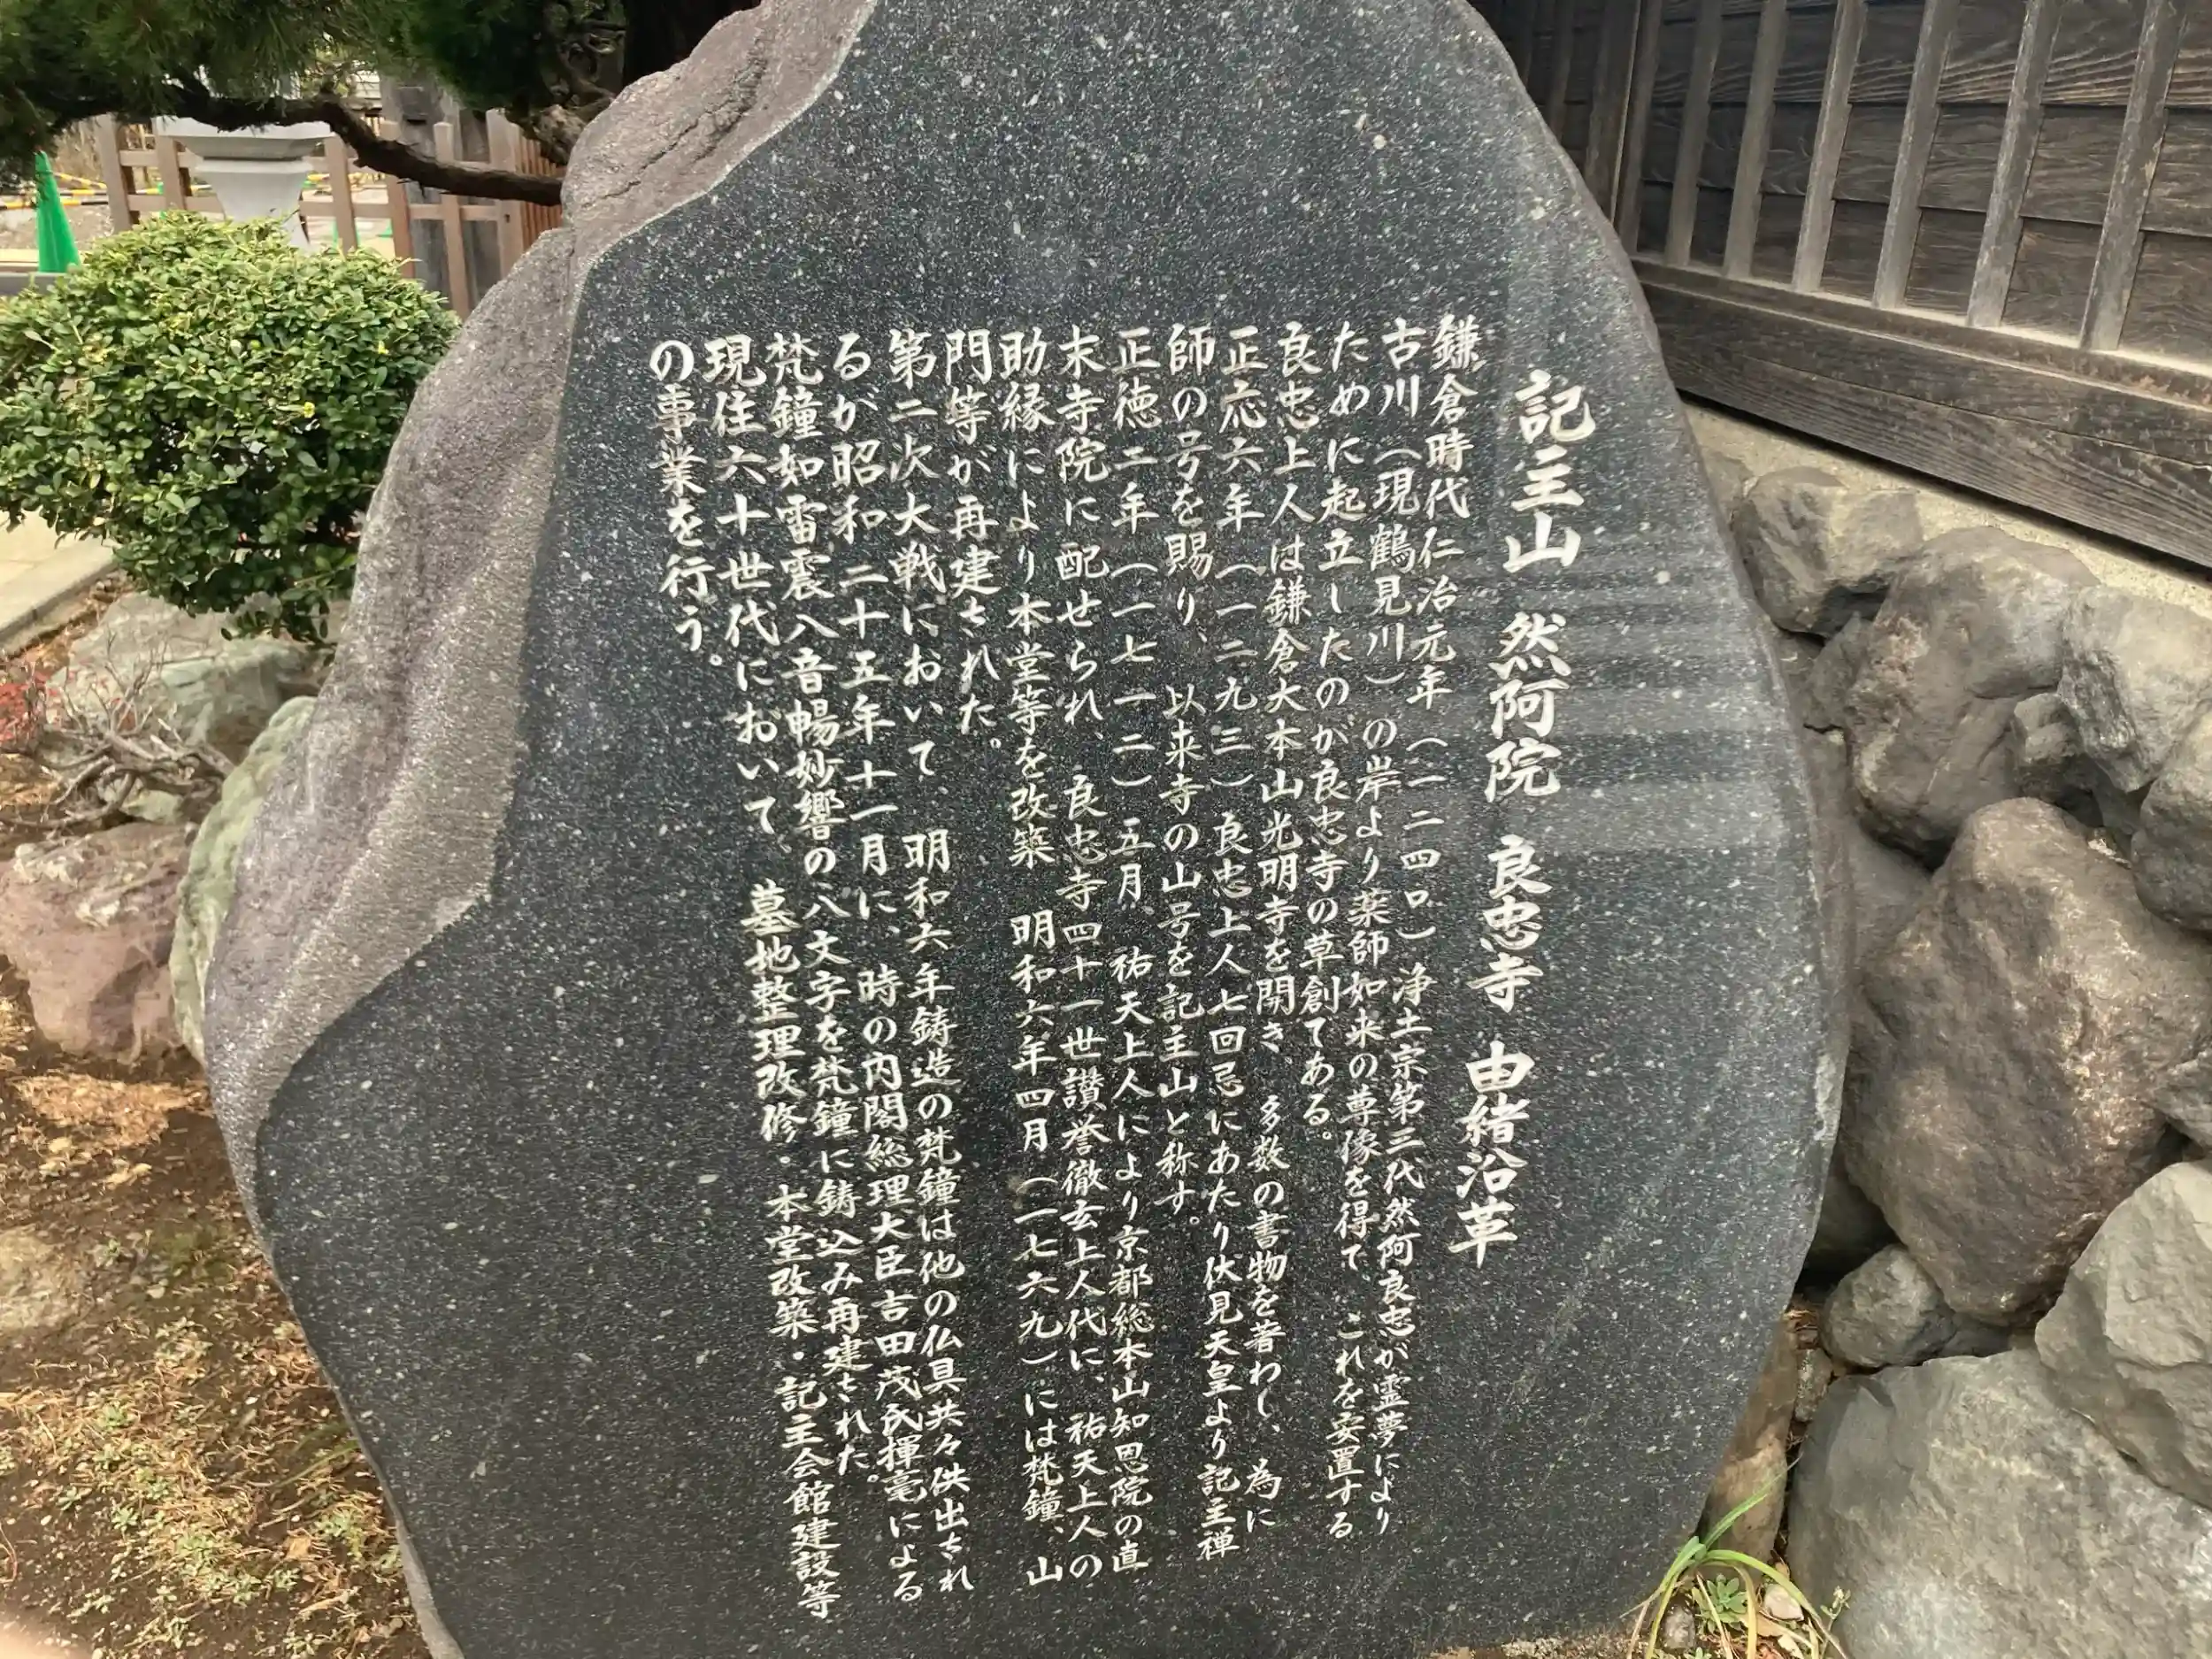 記主山 然阿院 良忠寺 由緒沿革
鎌倉時代仁治元年(一二四〇)浄土宗第三代然阿良忠が霊夢により
古川(現鶴見川)の岸より薬師如来の尊像を得て、これを安置する
ために起立したのが良忠寺の草創てある。
良忠上人は鎌倉大本山光明寺を開き、多数の書物を著わし、為に
正応六年(一二九三)良忠上人七回忌にあたり伏見天皇より記主禅
師の号を賜り、以来寺の山号を記主山と称す。
正徳二年(一七一二)五月、祐天上人により京都総本山知恩院の直
末寺院に配せられ、良忠寺四十一世讃誉徹玄上人代に、祐天上人の
助縁により本堂等を改築 明和六年四月(一七六九)には梵鐘、山
門等が再建された。
第二次大戦において 明和六年鋳造の梵鐘は他の仏具共々供出され
るが昭和二十五年十一月に、時の内閣総理大臣吉田茂氏揮毫による
梵鐘如雷震八音暢妙響の八文字を梵鐘に鋳込み再建された。
現住六十世代において、墓地整理改修・本堂改築・記主会館建設等
の事業を行う。